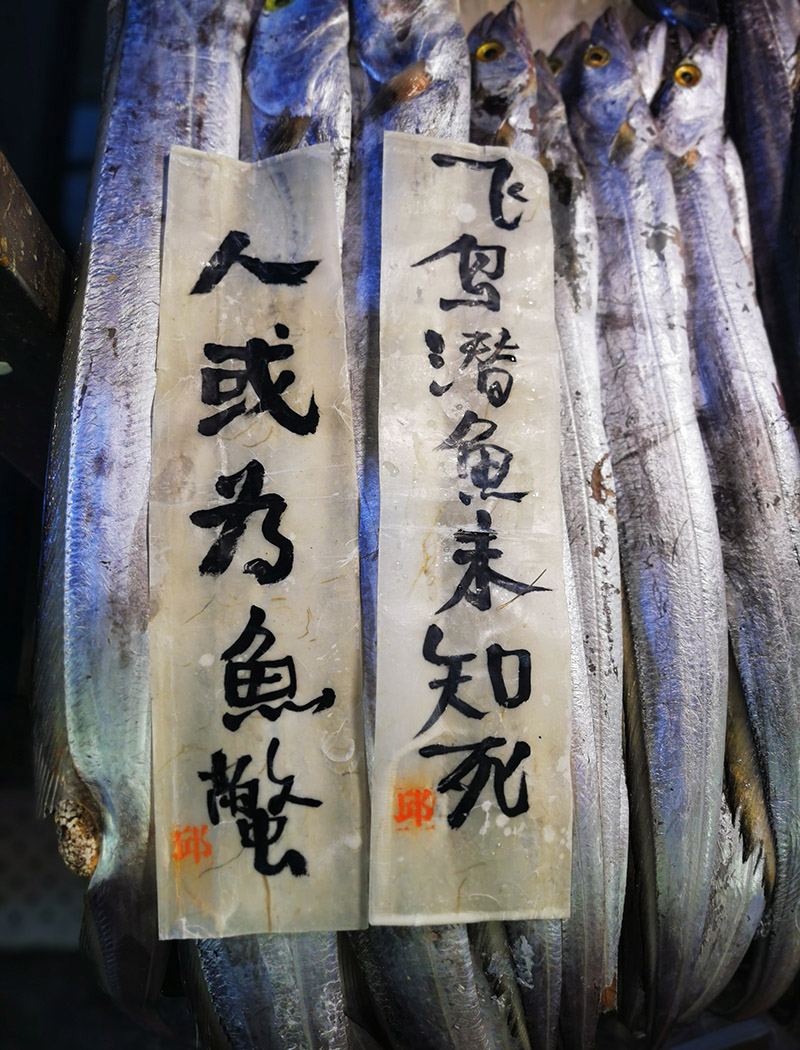 飞鸟潜魚未知死
邱
人或为魚鼈
邱